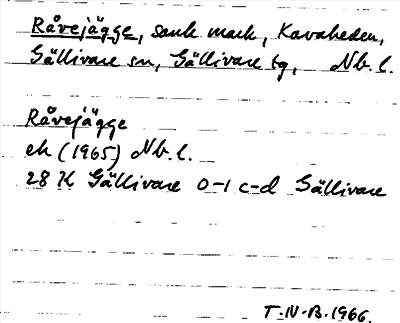 Råvejägge, sank mark, Kavaheden,
Gällivare sn, Gällivare tg, Nb. l.
Råvejägge
ek (1965) Nb. l.
28 K Gällivare 0-1 c-d Gällivare
T.N.B. 1966.